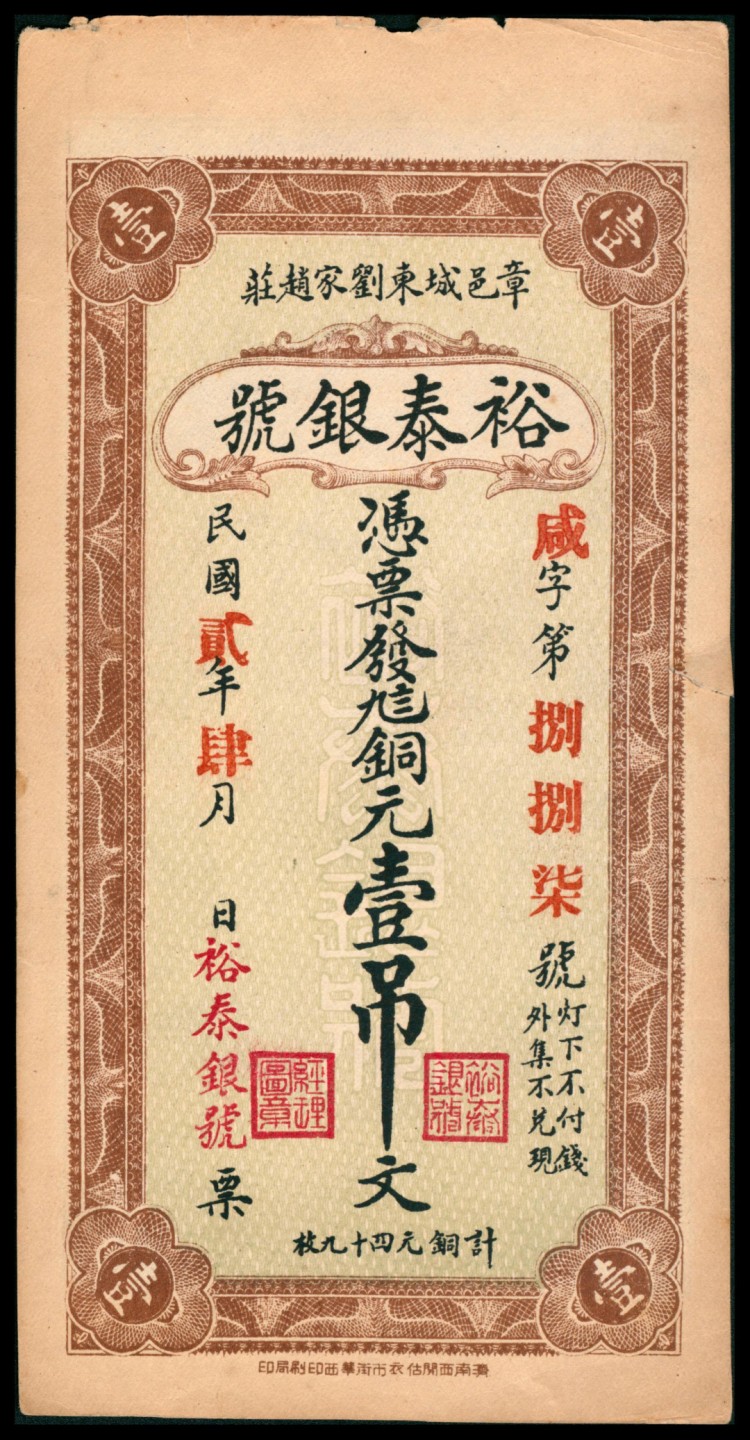 壹
壹
章邑城東劉家趙莊
裕泰銀號
咸字第捌捌柒號
灯下不付錢
外集不兌現
憑票發九三銅元壹吊文
民國貳年肆月 日裕泰銀號票
裕泰銀號
經理圖章
計銅元四十九枚
壹
壹
濟南西關估衣市街華西印刷局印